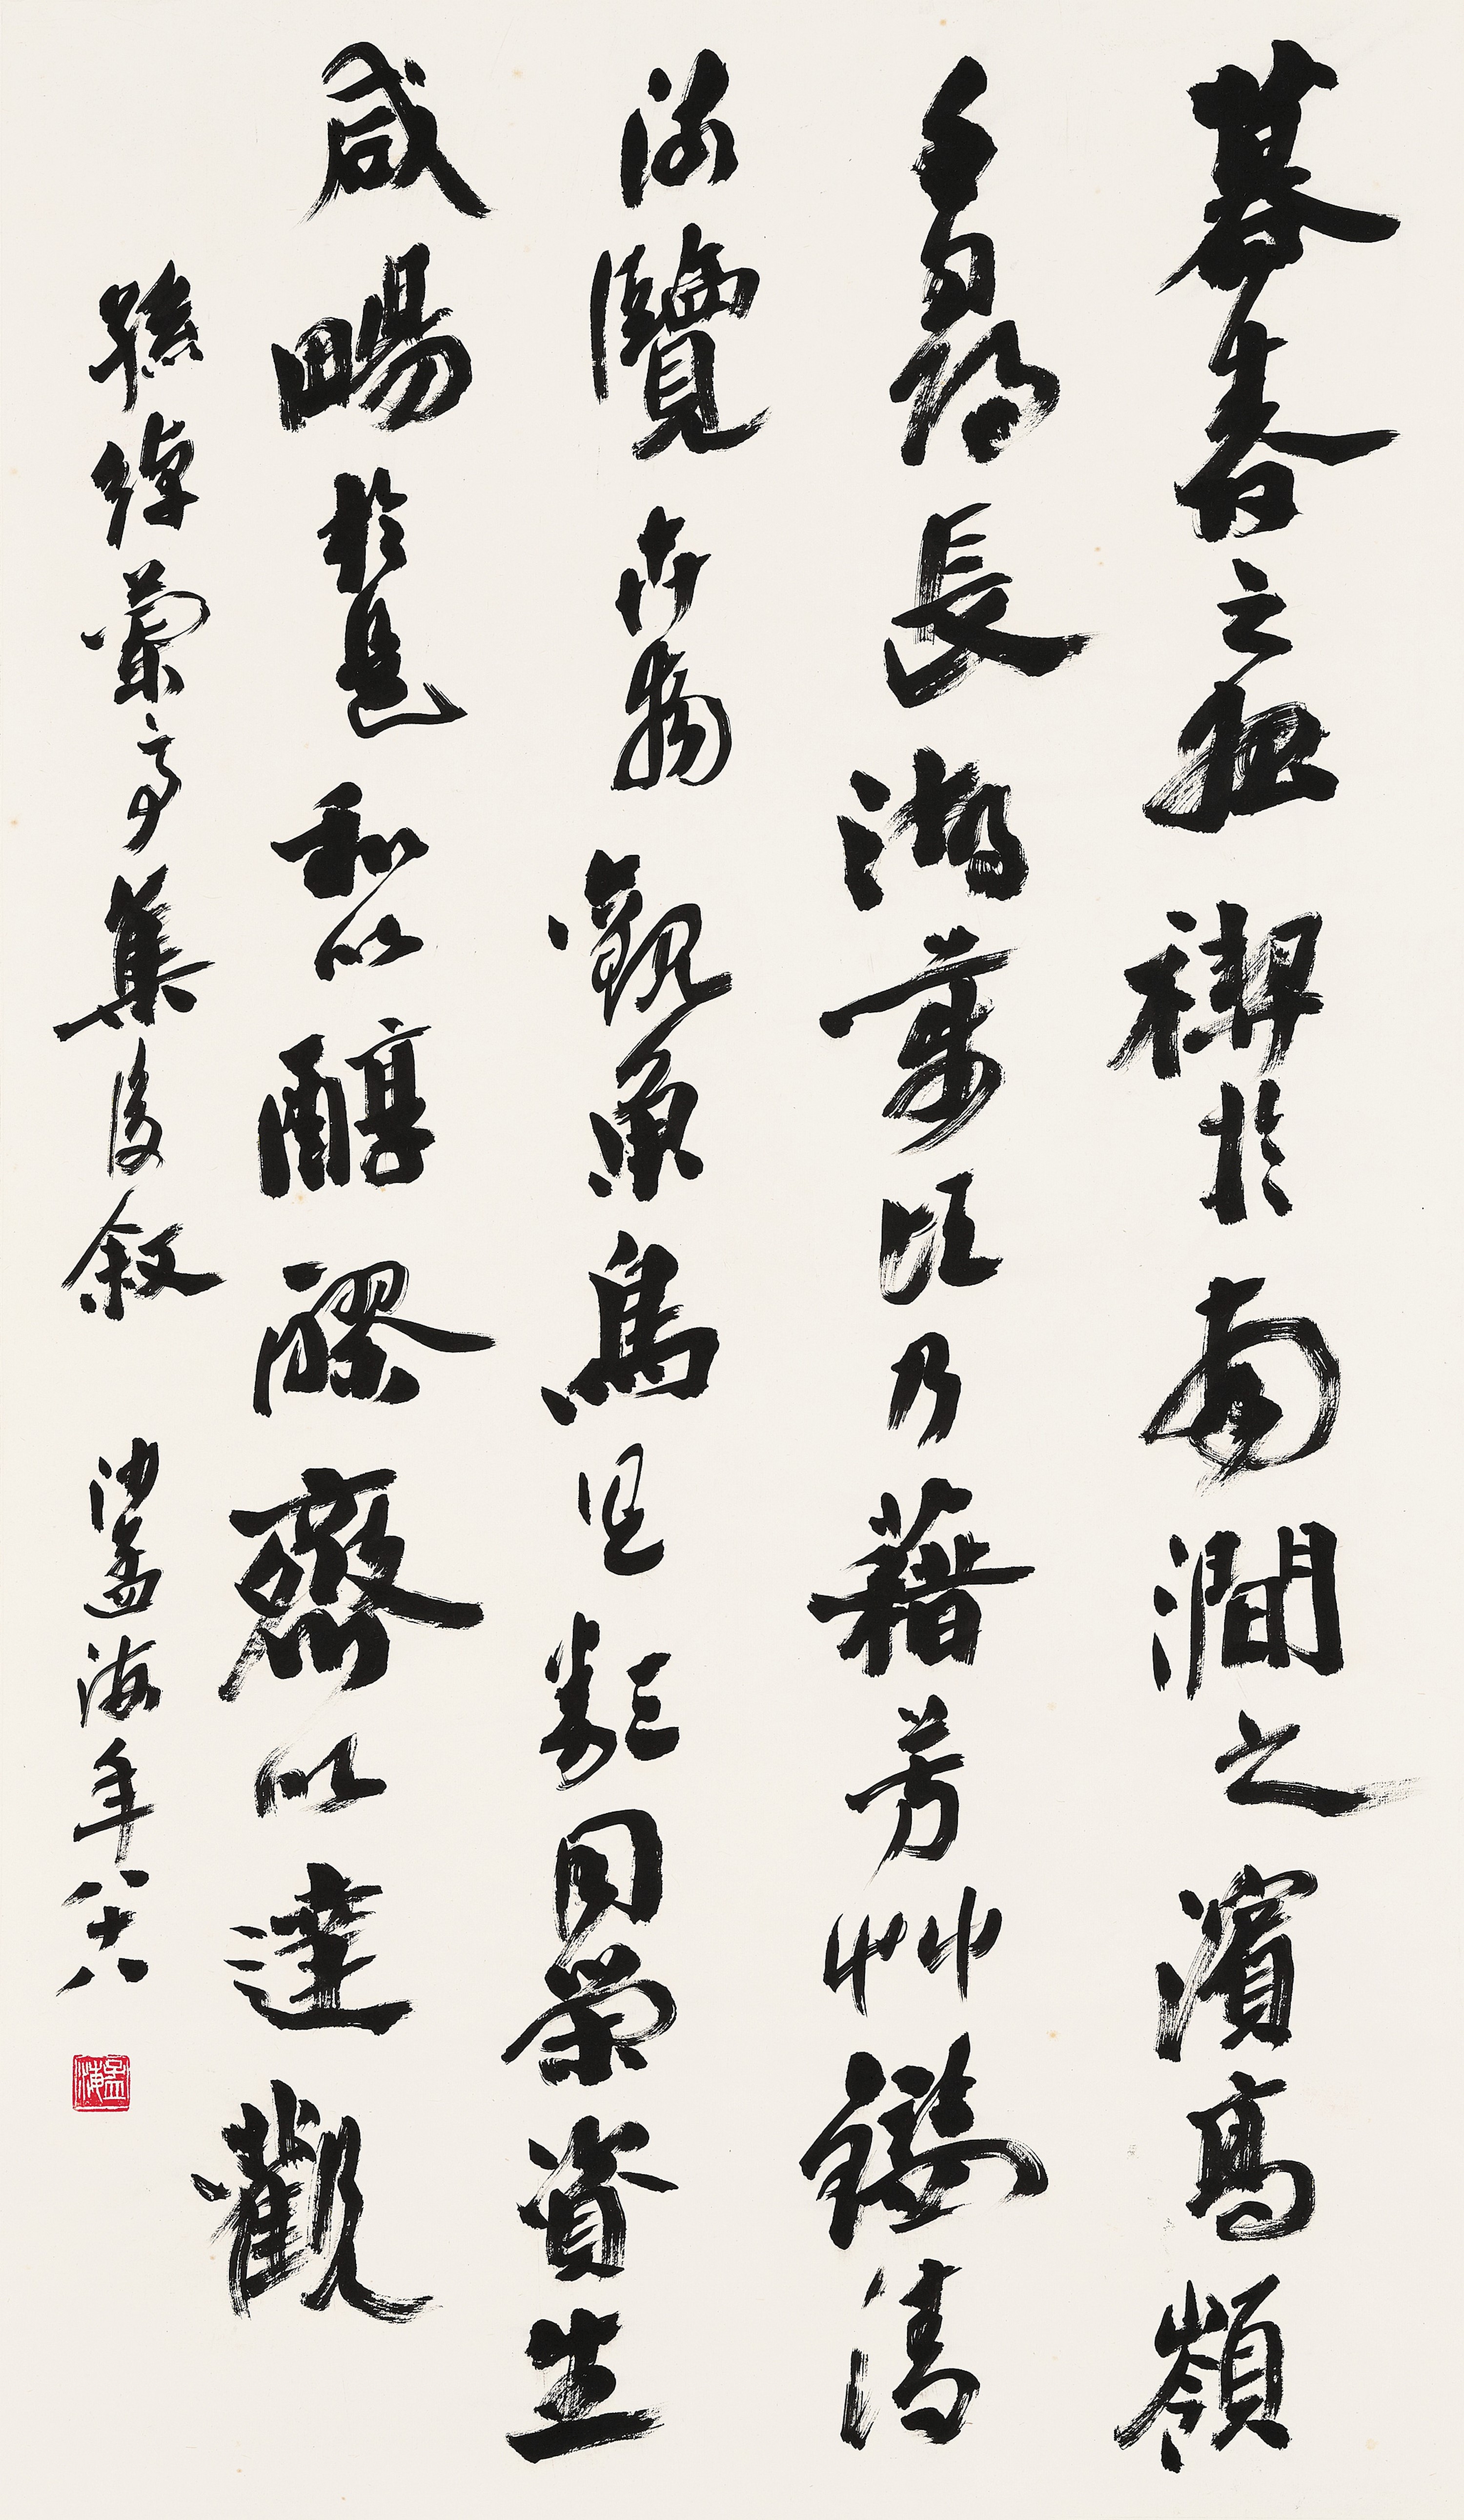 暮春之始禊於南澗之濱高嶺
千尋長湖萬頃乃藉芳艸鑑清
流覽卉物觀魚鳥具類同榮資生
咸暢於是和以醇醪齊以達觀
孫綽蘭亭集後敘 沙孟海年八十八
孟海